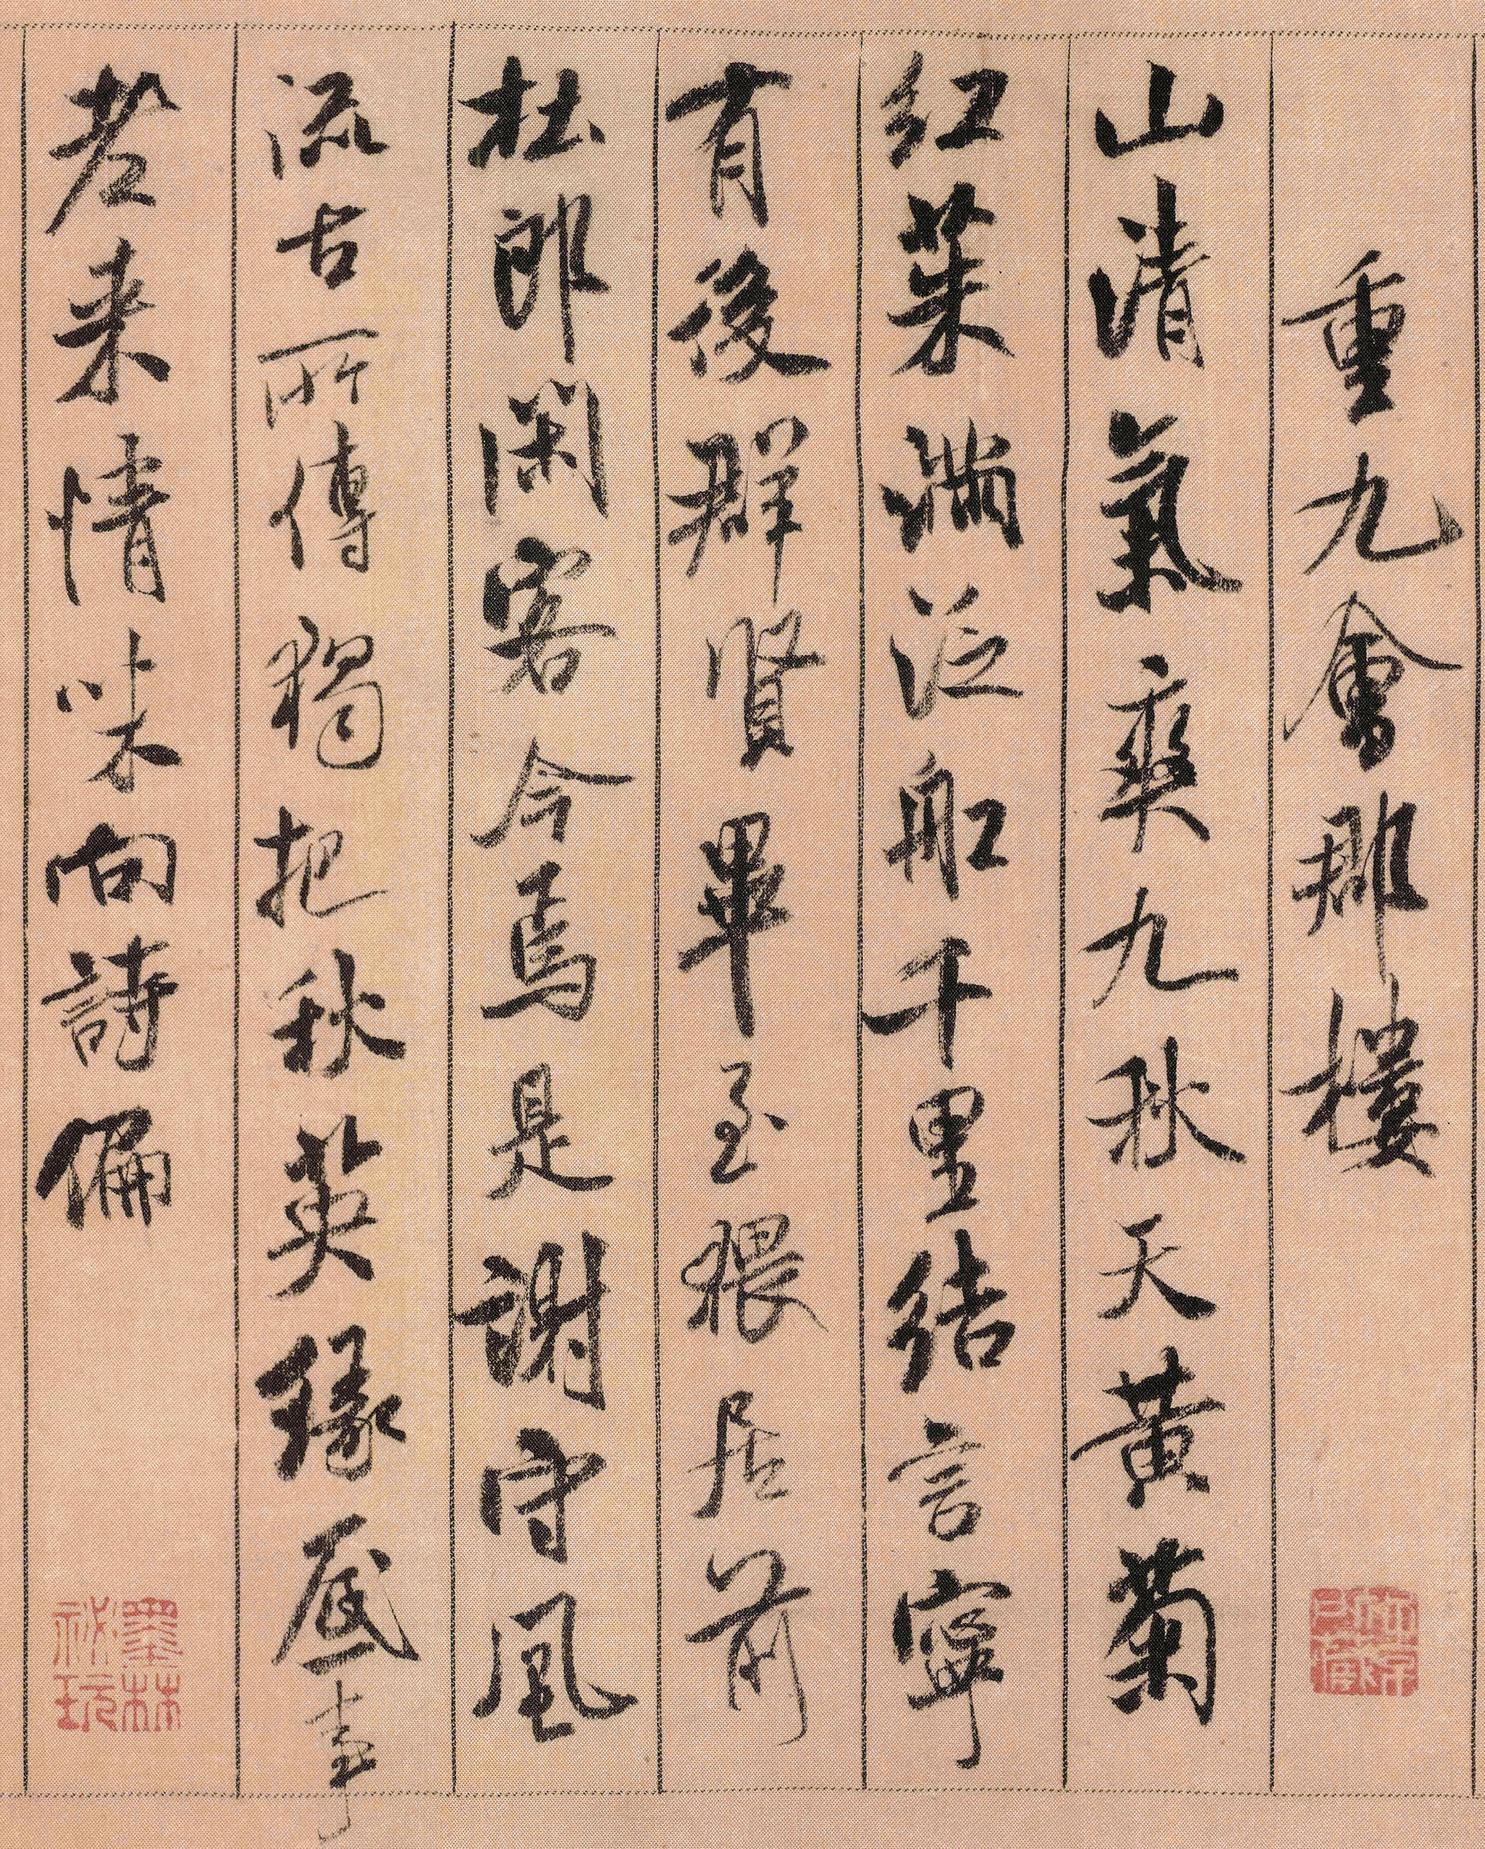 重九會郡樓
山清氣爽九秋天黃菊
紅茱滿泛舡千里結言寧
有後群賢畢至猥居前
杜郎閑客今焉是謝守風
流古所傳獨把秋英緣底事
老来情味向詩偏
墨林
祕玩